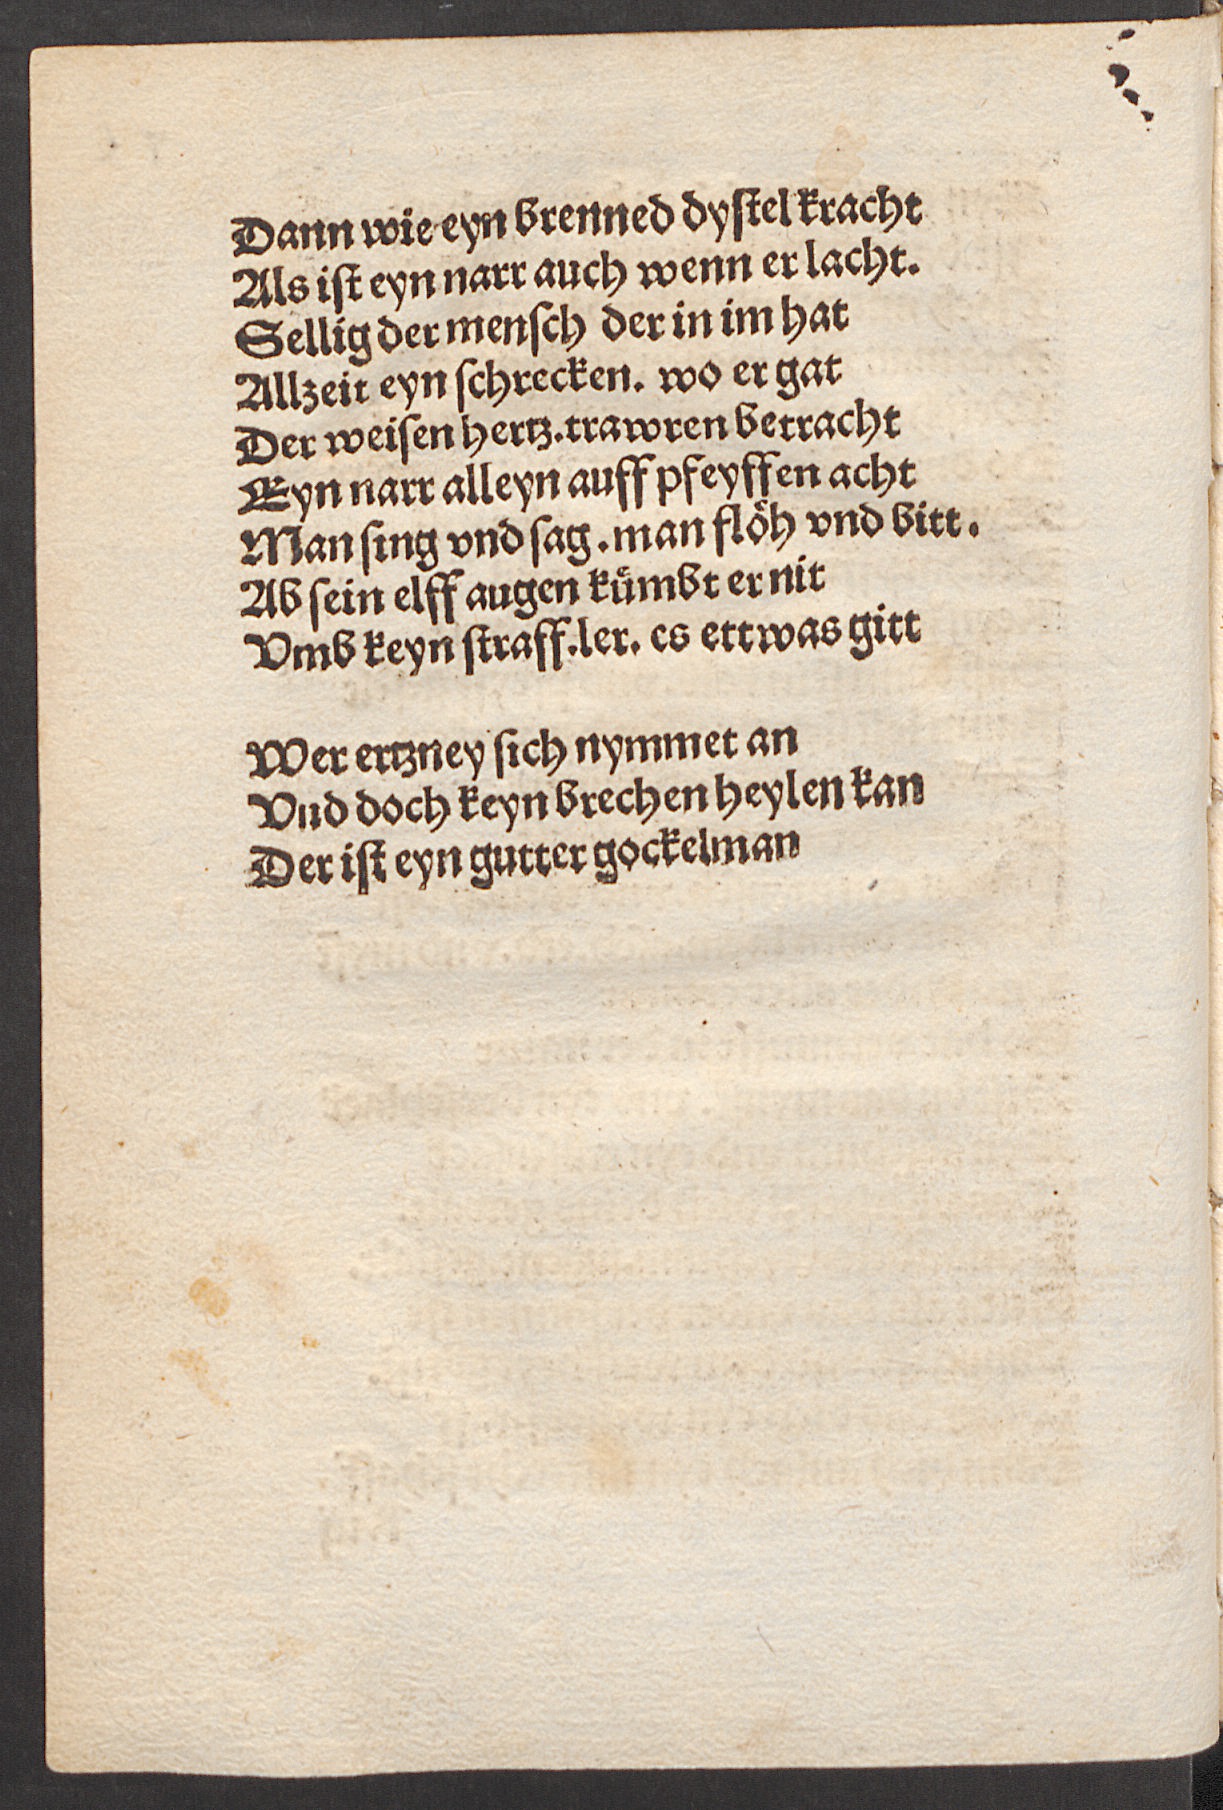 Dann wie eyn brenned dyſtel kracht
Als iſt eyn narr auch wenn er lacht.
Sellig der menſch der in im hat
Allzeit eyn ſchrecken. wo er gat
Der weiſen hertz. trawren betracht
Eyn narr alleyn auff pfeyffen acht
Man ſing vnd ſag. man floͤh vnd bitt.
Ab ſein elff augen kuͤmbt er nit
Vmb keyn ſtraff. ler. es ettwas gitt

Wer ertzney ſich nymmet an
Vnd doch keyn brechen heylen kan
Der iſt eyn gutter gockelman